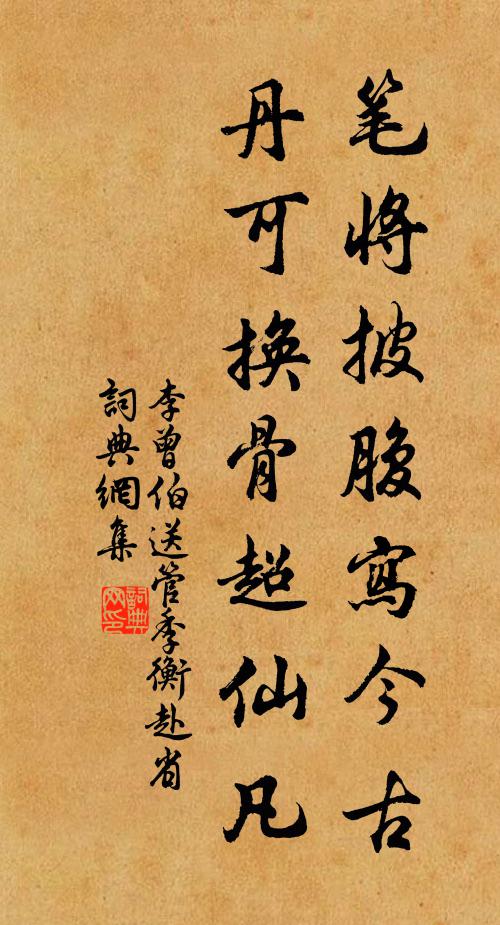 笔将披腹寫今古
丹可换骨超仙凡
李曾伯送管季衡赴省
詞典網集
詞典网印